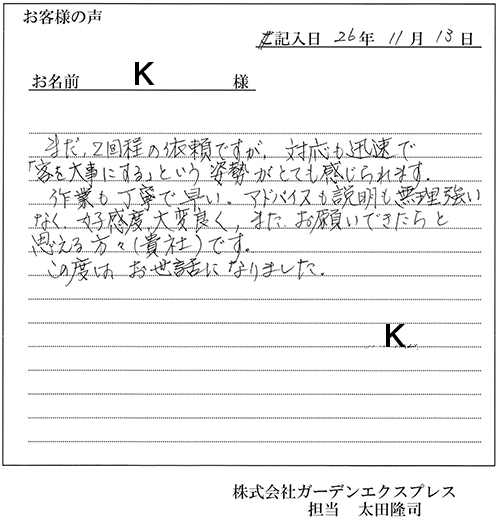 お客様の声
ご記入日 26年 11月 13日
お名前 K 様
まだ、2回程の依頼ですが、対応も迅速で
「客を大事にする」という姿勢がとても感じられます。
作業も丁寧で早い。アドバイスも説明も無理強い
なく、好感度、大変良く、また、お願いできたらと
思える方々(貴社)です。
この度は お世話になりました。
K
株式会社ガーデンエクスプレス
担当 太田隆司